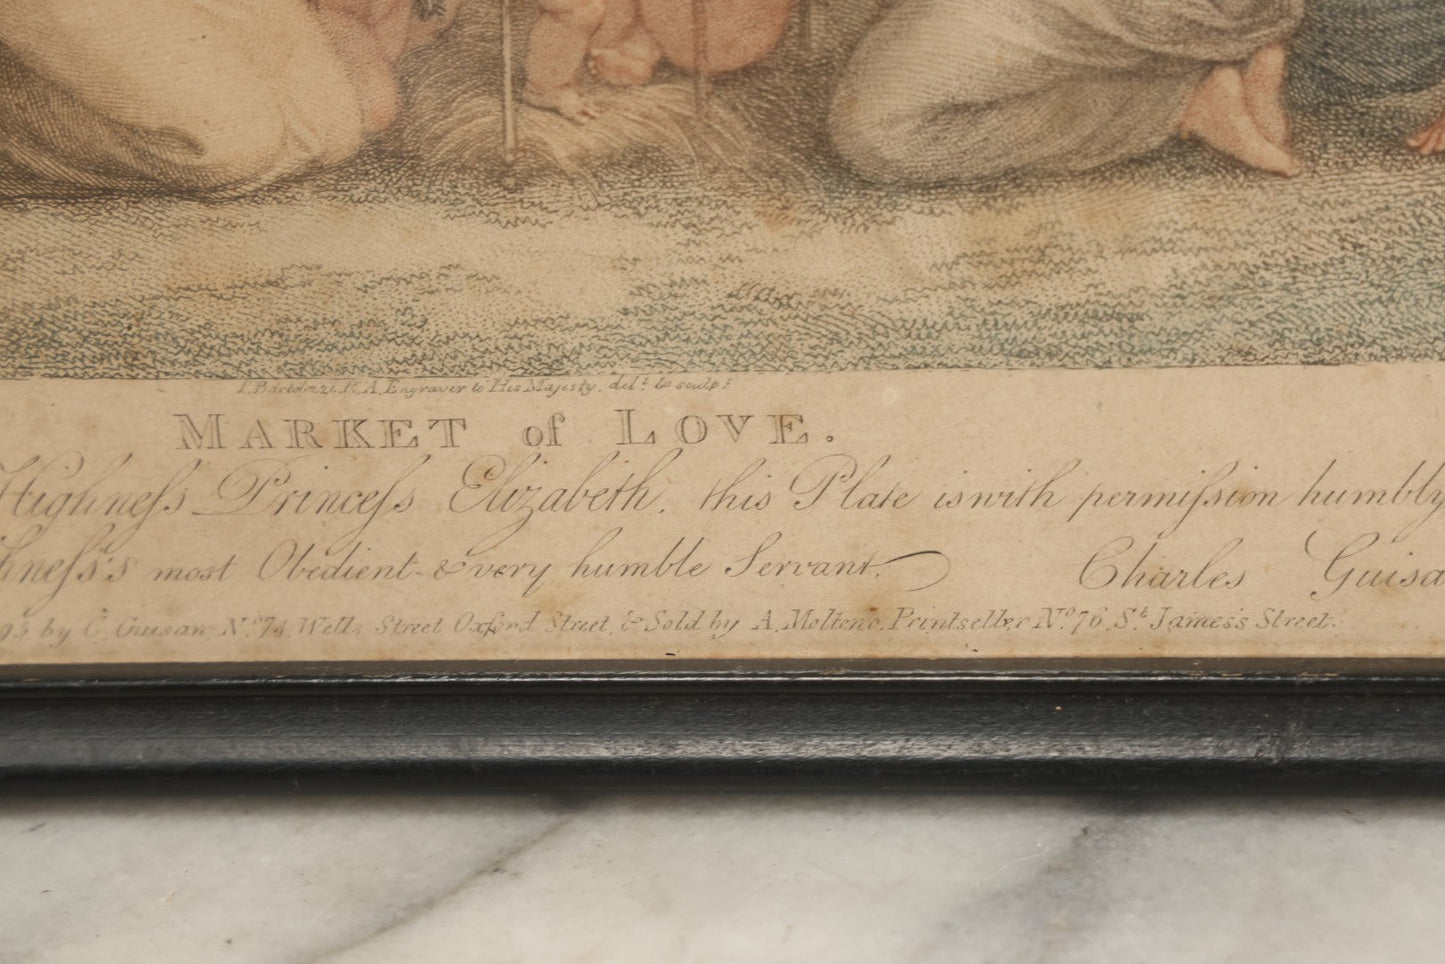 F. Bartolozzi, R.A. Engraver to His Majesty, del.t & sculp.t
MARKET of LOVE.
Highneſs Princeſs Elizabeth, this Plate is with permiſsion humbly
hneſs's most Obedient & very humble Servant, Charles Guisa
95 by C. Guisan, N.o 74, Wells Street Oxford Street, & Sold by A. Molteno, Printseller N.o 76, S.t James's Street.